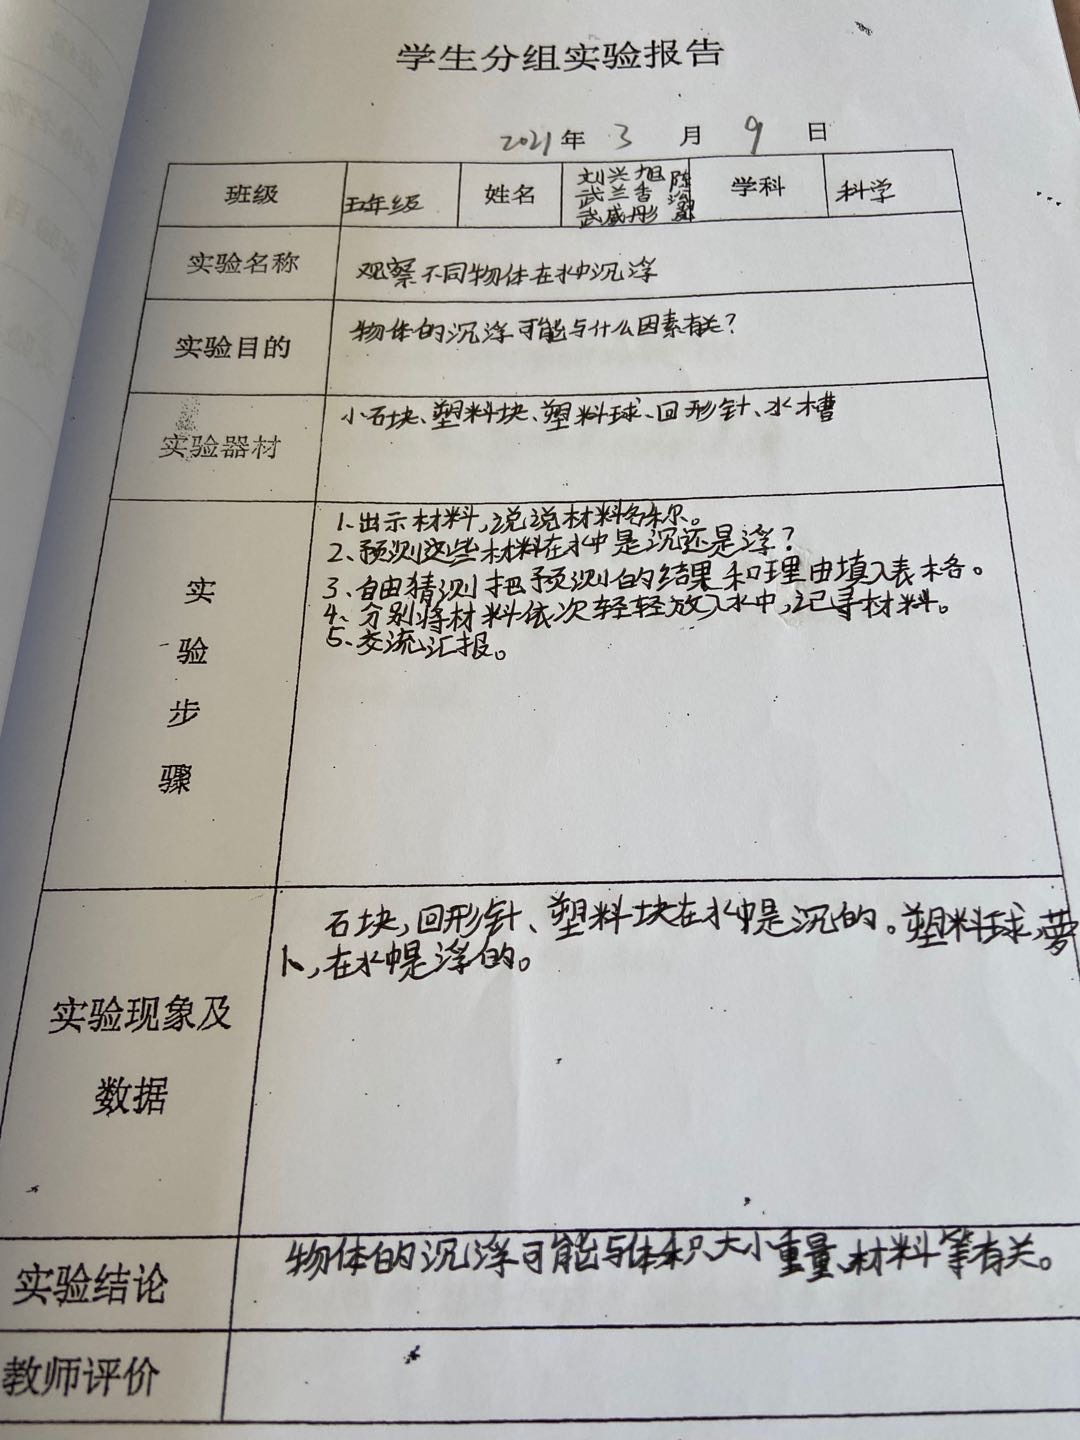 学生分组实验报告
2021年 3 月 9 日
班级 五年级 姓名 刘兴旭 武兰香 武盛彤 学科 科学
实验名称 观察不同物体在水中沉浮
实验目的 物体的沉浮可能与什么因素有关?
实验器材 小石块、塑料块、塑料球、回形针、水槽
实验步骤
1、出示材料,说说材料名称。
2、预测这些材料在水中是沉还是浮?
3、自由猜测把预测的结果和理由填入表格。
4、分别将材料依次轻轻放入水中,记录材料。
5、交流汇报。
实验现象及数据
石块,回形针、塑料块在水中是沉的。塑料球,萝
卜,在水中是浮的。
实验结论 物体的沉浮可能与体积大小重量、材料等有关。
教师评价